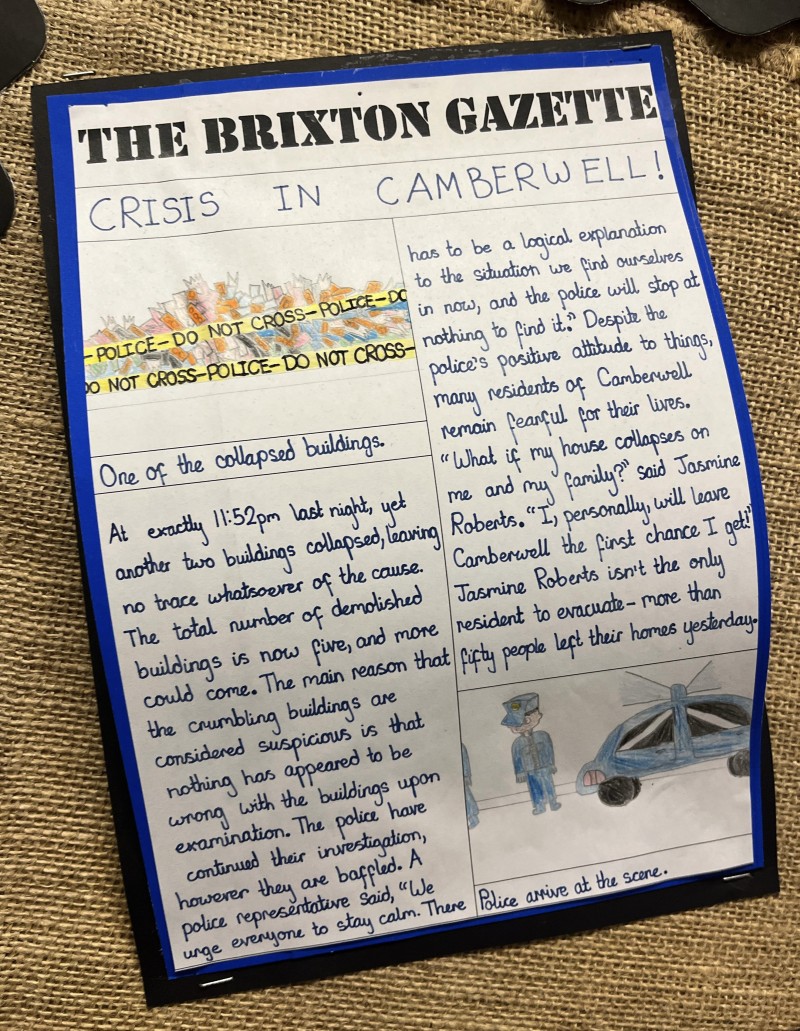 THE BRIXTON GAZETTE
CRISIS IN CAMBERWELL!
-POLICE-DO NOT CROSS-POLICE-DO
DO NOT CROSS-POLICE-DO NOT CROSS-
One of the collapsed buildings.
At exactly 11:52pm last night, yet
another two buildings collapsed, leaving
no trace whatsoever of the cause.
The total number of demolished
buildings is now five, and more
could come. The main reason that
the crumbling buildings are
considered suspicious is that
nothing has appeared to be
wrong with the buildings upon
examination. The police have
continued their investigation,
however they are baffled. A
police representative said, "We
urge everyone to stay calm. There
has to be a logical explanation
to the situation we find ourselves
in now, and the police will stop at
nothing to find it." Despite the
police's positive attitude to things,
many residents of Camberwell
remain fearful for their lives.
"What if my house collapses on
me and my family?" said Jasmine
Roberts. "I, personally, will leave
Camberwell the first chance I get!"
Jasmine Roberts isn't the only
resident to evacuate - more than
fifty people left their homes yesterday.
Police arrive at the scene.